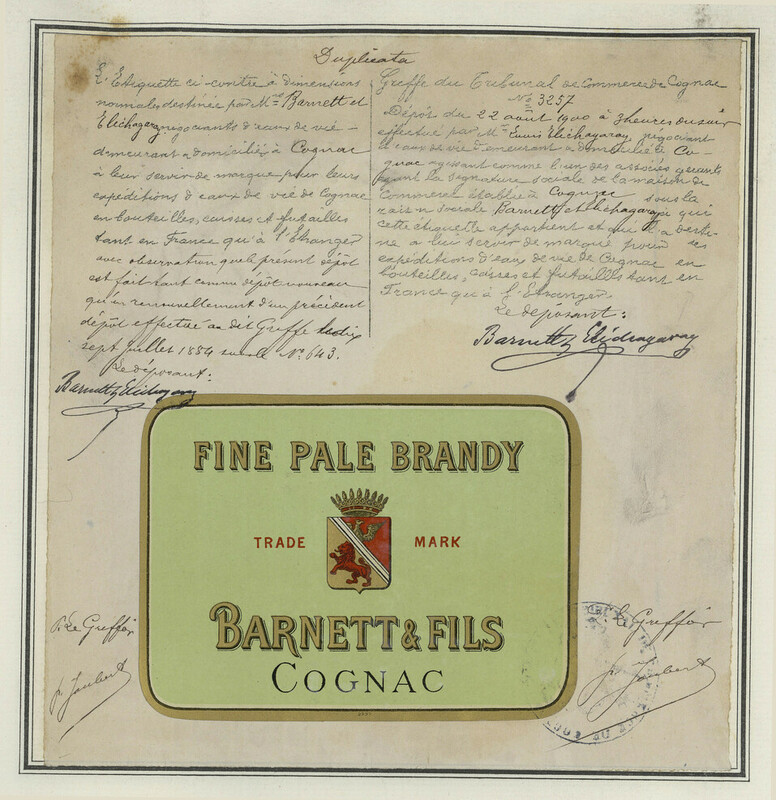 Duplicata
L'Etiquette ci-contre à dimensions
normales, destinée par Mrs Barnett et
Elichagaray negociants d'eaux de vie
demeurant & domiciliés à Cognac
à leur servir de marque pour leurs
expéditions d'eaux de vie de Cognac
en bouteilles, caisses et futailles
tant en France qu'à l'Etranger
avec observation que le présent dépôt
est fait tant comme dépôt nouveau
qu'en renouvellement d'un précédent
dépôt effectué au dit Greffe le dix
sept juillet 1884 sous le No 643.
Le déposant:
Barnett & Elichagaray
Greffe du Tribunal de Commerce de Cognac
No 3257
Dépôt du 22 août 1900 à 3 heures du soir
effectué par Mr Louis Elichagaray, negociant
d'eaux de vie demeurant & domicilié à Co-
gnac agissant comme l'un des associés gerants
ayant la signature sociale de la maison de
Commerce établie à Cognac sous la
raison sociale Barnett et Elichagaray à qui
cette etiquette appartient et qui l'a desti-
né à lui servir de marque pour ses
expéditions d'eaux de vie de Cognac en
bouteilles, caisses et futailles tant en
France qu'à l'Etranger
Le déposant:
Barnett & Elichagaray
FINE PALE BRANDY
TRADE MARK
BARNETT & FILS
COGNAC
p. Le Greffier
p. Joubert
p. Le Greffier
p. Joubert